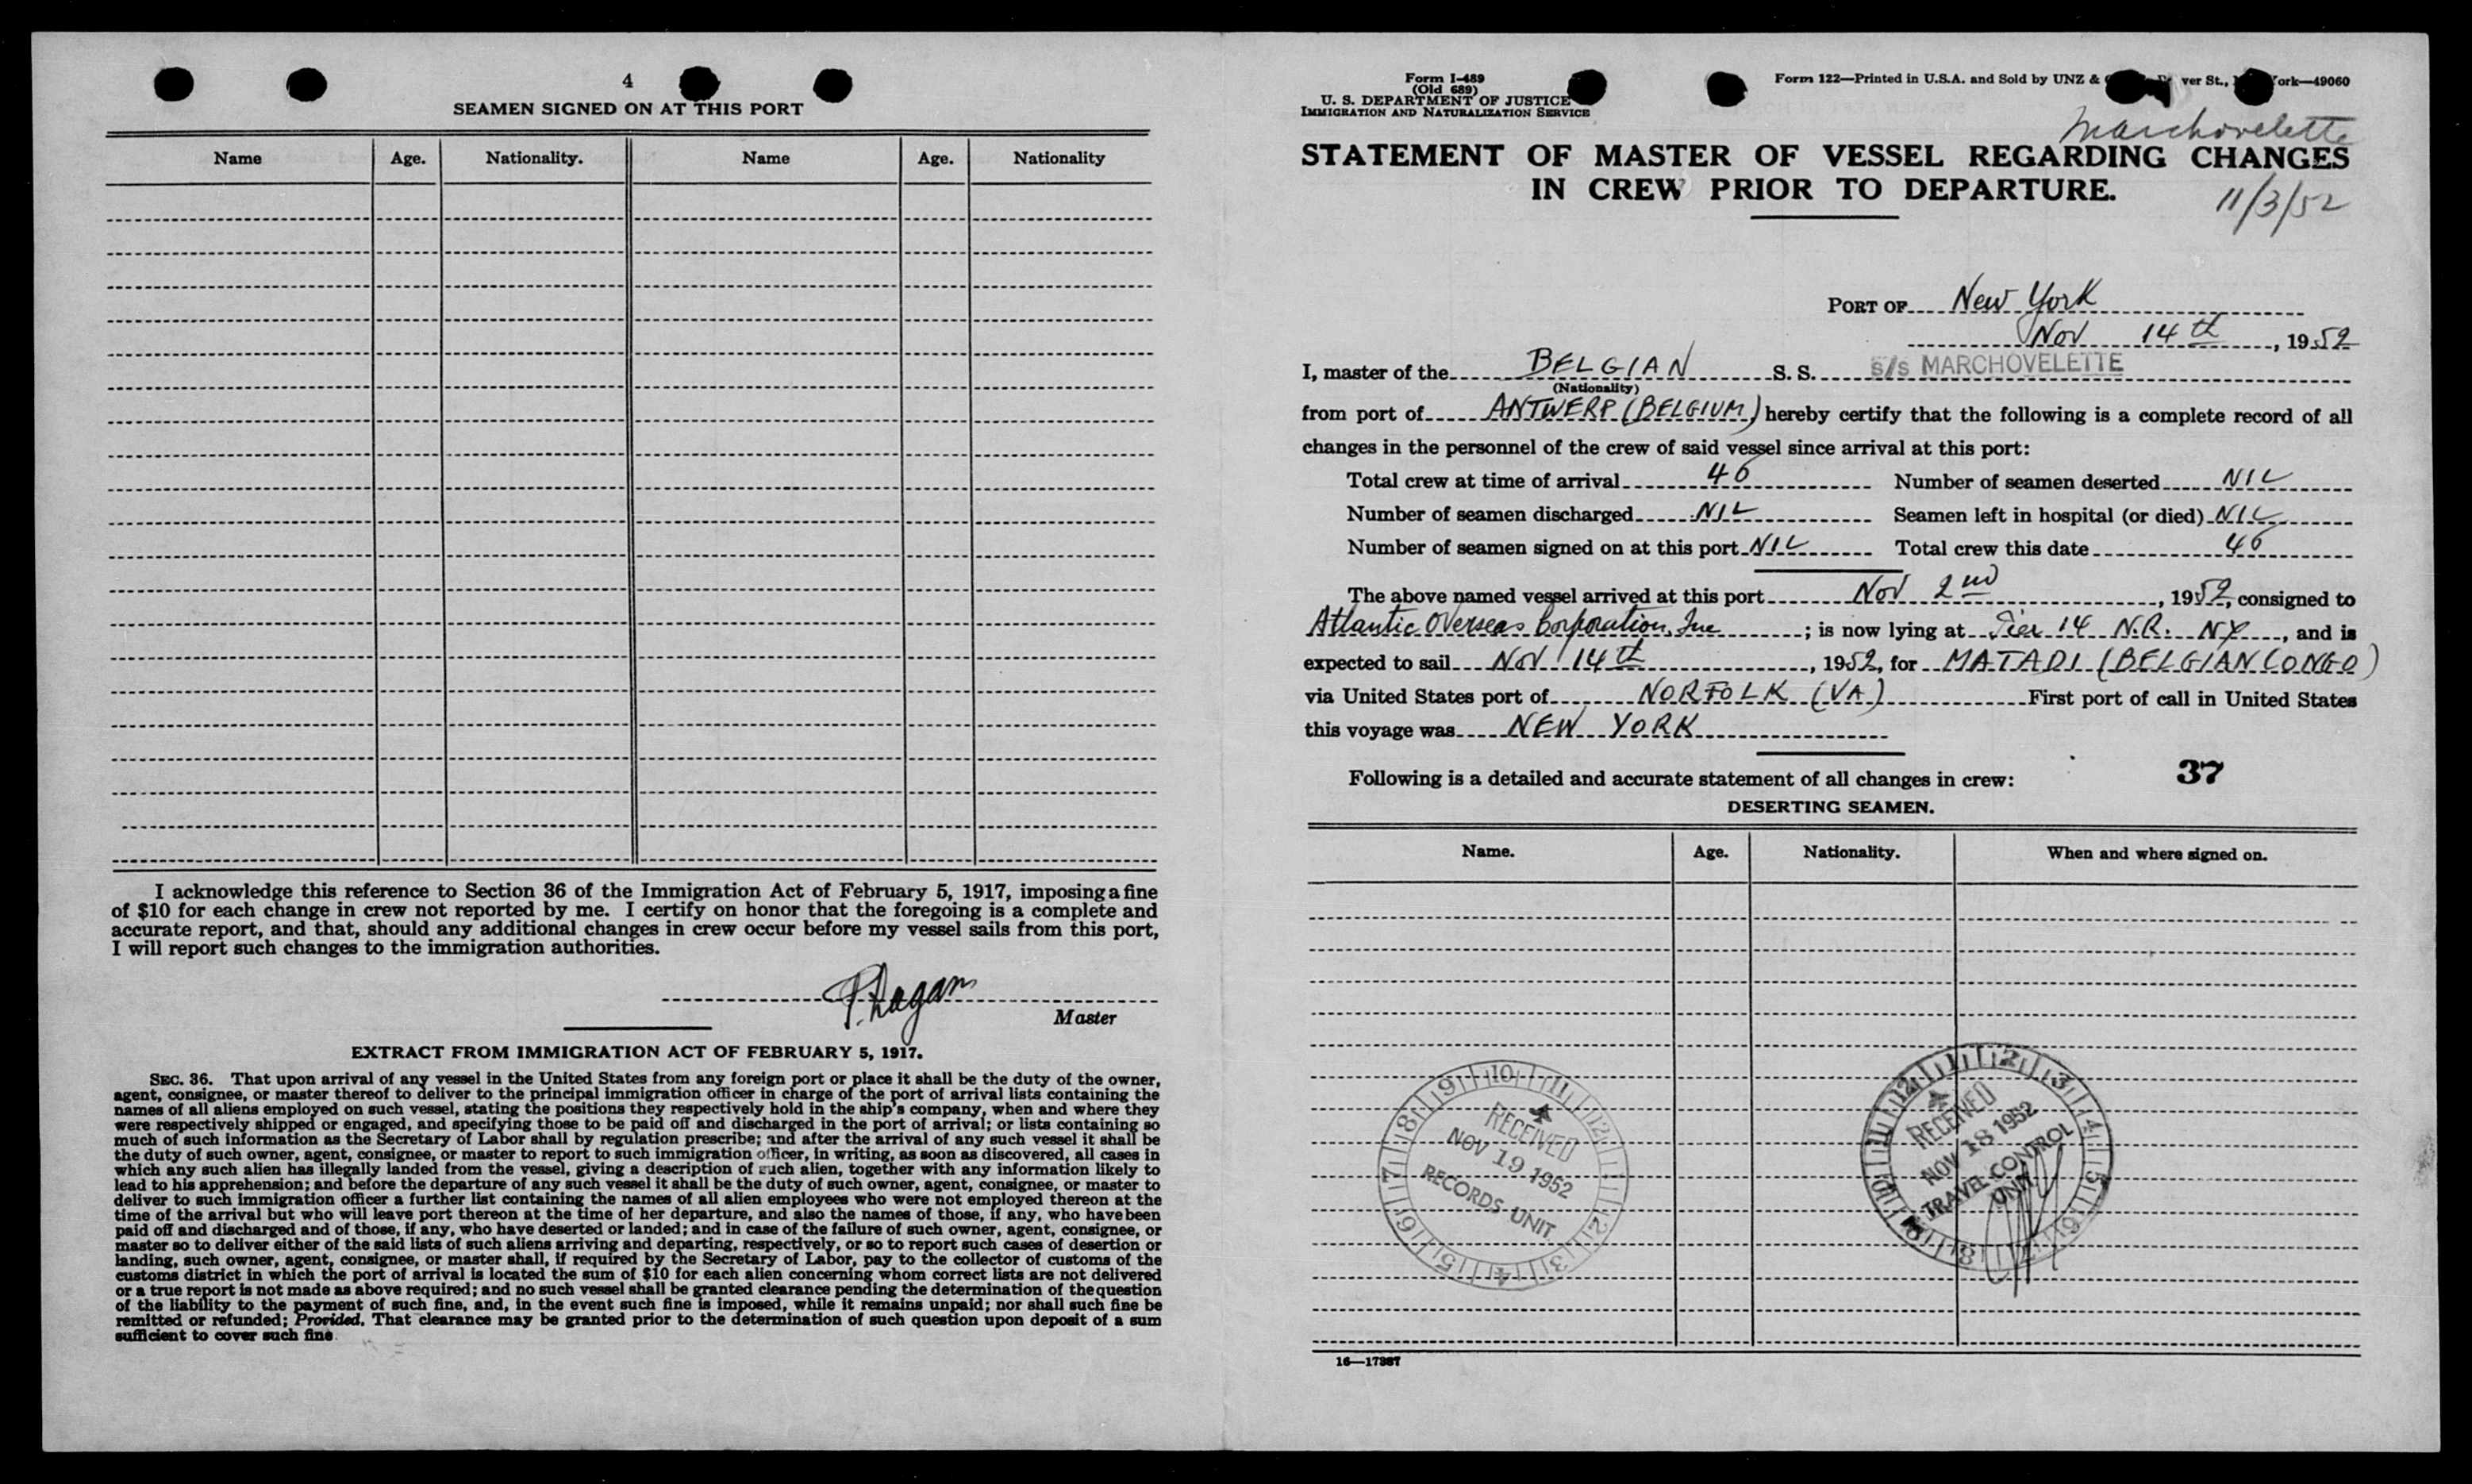 4
SEAMEN SIGNED ON AT THIS PORT
Name Age. Nationality. Name Age. Nationality
I acknowledge this reference to Section 36 of the Immigration Act of February 5, 1917, imposing a fine
of $10 for each change in crew not reported by me. I certify on honor that the foregoing is a complete and
accurate report, and that, should any additional changes in crew occur before my vessel sails from this port,
I will report such changes to the immigration authorities.
Master
EXTRACT FROM IMMIGRATION ACT OF FEBRUARY 5, 1917.
SEC. 36. That upon arrival of any vessel in the United States from any foreign port or place it shall be the duty of the owner,
agent, consignee, or master thereof to deliver to the principal immigration officer in charge of the port of arrival lists containing the
names of all aliens employed on such vessel, stating the positions they respectively hold in the ship's company, when and where they
were respectively shipped or engaged, and specifying those to be paid off and discharged in the port of arrival; or lists containing so
much of such information as the Secretary of Labor shall by regulation prescribe; and after the arrival of any such vessel it shall be
the duty of such owner, agent, consignee, or master to report to such immigration officer, in writing, as soon as discovered, all cases in
which any such alien has illegally landed from the vessel, giving a description of such alien, together with any information likely to
lead to his apprehension; and before the departure of any such vessel it shall be the duty of such owner, agent, consignee, or master to
deliver to such immigration officer a further list containing the names of all alien employees who were not employed thereon at the
time of the arrival but who will leave port thereon at the time of her departure, and also the names of those, if any, who have been
paid off and discharged and of those, if any, who have deserted or landed; and in case of the failure of such owner, agent, consignee, or
master so to deliver either of the said lists of such aliens arriving and departing, respectively, or so to report such cases of desertion or
landing, such owner, agent, consignee, or master shall, if required by the Secretary of Labor, pay to the collector of customs of the
customs district in which the port of arrival is located the sum of $10 for each alien concerning whom correct lists are not delivered
or a true report is not made as above required; and no such vessel shall be granted clearance pending the determination of the question
of the liability to the payment of such fine, and, in the event such fine is imposed, while it remains unpaid; nor shall such fine be
remitted or refunded; Provided, That clearance may be granted prior to the determination of such question upon deposit of a sum
sufficient to cover such fine.
Form I-489
(Old 689)
U. S. DEPARTMENT OF JUSTICE
IMMIGRATION AND NATURALIZATION SERVICE
Form 122—Printed in U.S.A. and Sold by UNZ & ver St., ork—49060
Marchovelette
STATEMENT OF MASTER OF VESSEL REGARDING CHANGES
IN CREW PRIOR TO DEPARTURE.
11/3/52
PORT OF New York
Nov 14th, 1952
I, master of the BELGIAN S. S. S/S MARCHOVELETTE
(Nationality)
from port of ANTWERP (BELGIUM) hereby certify that the following is a complete record of all
changes in the personnel of the crew of said vessel since arrival at this port:
Total crew at time of arrival 46 Number of seamen deserted NIL
Number of seamen discharged NIL Seamen left in hospital (or died) NIL
Number of seamen signed on at this port NIL Total crew this date 46
The above named vessel arrived at this port Nov 2nd, 1952, consigned to
Atlantic Overseas Corporation, Inc; is now lying at Pier 14 N.R. NY, and is
expected to sail Nov 14th, 1952, for MATADI (BELGIAN CONGO)
via United States port of NORFOLK (VA) First port of call in United States
this voyage was NEW YORK
Following is a detailed and accurate statement of all changes in crew: 37
DESERTING SEAMEN.
Name. Age. Nationality. When and where signed on.
RECEIVED
NOV 19 1952
RECORDS UNIT
RECEIVED
NOV 18 1952
TRAVEL CONTROL
UNIT
16—17387